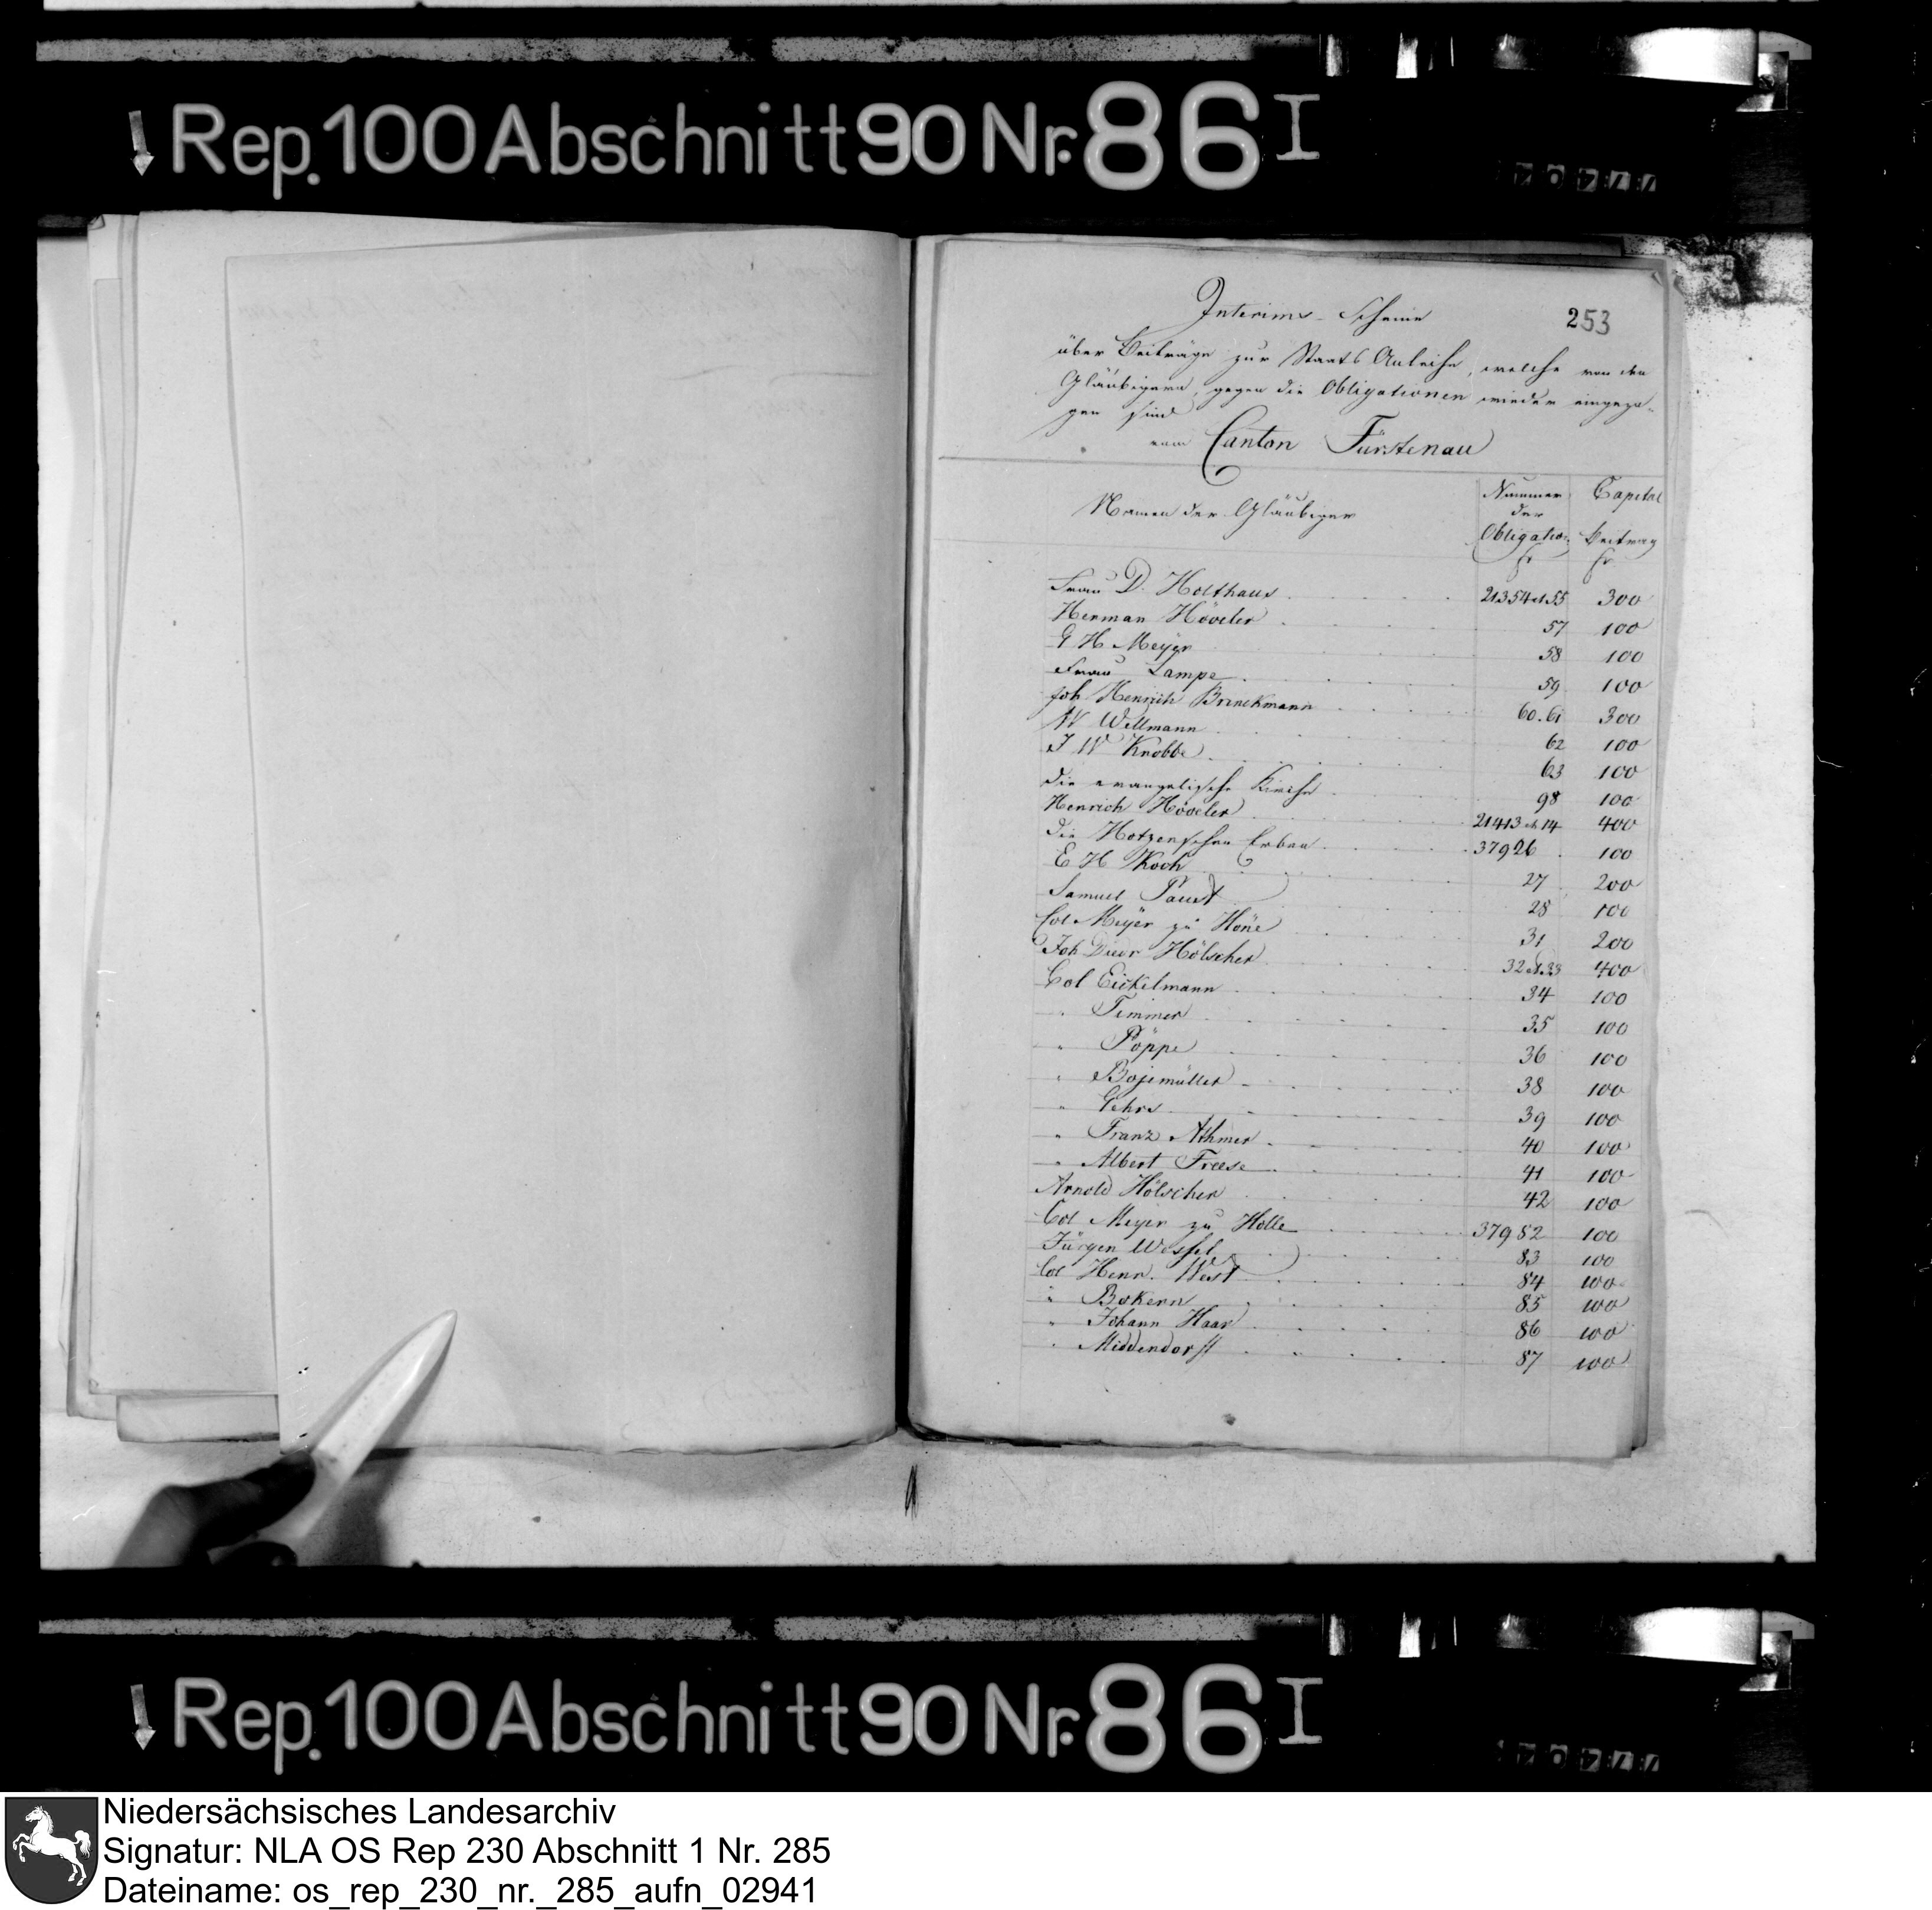 Rep. 100 Abschnitt 90 Nr. 86 I
253
Interims-Scheine
über Beiträge zur Staats Anleihe, welche von den
Gläubigern, gegen die Obligationen wieder eingezo-
gen sind
vom Canton Fürstenau
Namen der Gläubiger Nummer der Obligation Capital Beitrag
fr fr
Frau D. Holthaus 21354 et 55 300
Herman Höveler 57 100
G H Meyer 58 100
Frau Lampe 59 100
Joh Henrich Brinckmann 60.61 300
W Willmann 62 100
J W Knobbe 63 100
die evangelische Kirche 98 100
Henrich Höveler 21413 et 14 400
die Hotzenschen Erben 37926 100
E H Koch 27 200
Samuel Paust 28 100
Col Meyer zu Höne 31 200
Joh Diedr Hölscher 32 et 33 400
Col Eickelmann 34 100
" Timmer 35 100
" Pöppe 36 100
" Bojemüller 38 100
" Gehrs 39 100
" Franz Athmer 40 100
" Albert Freese 41 100
Arnold Hölscher 42 100
Col Meyer zu Holle 37982 100
Jürgen Wessel 83 100
Col Henr. West 84 100
" Bokern 85 100
" Johann Haar 86 100
" Middendorff 87 100
Rep. 100 Abschnitt 90 Nr. 86 I
Niedersächsisches Landesarchiv
Signatur: NLA OS Rep 230 Abschnitt 1 Nr. 285
Dateiname: os_rep_230_nr._285_aufn_02941